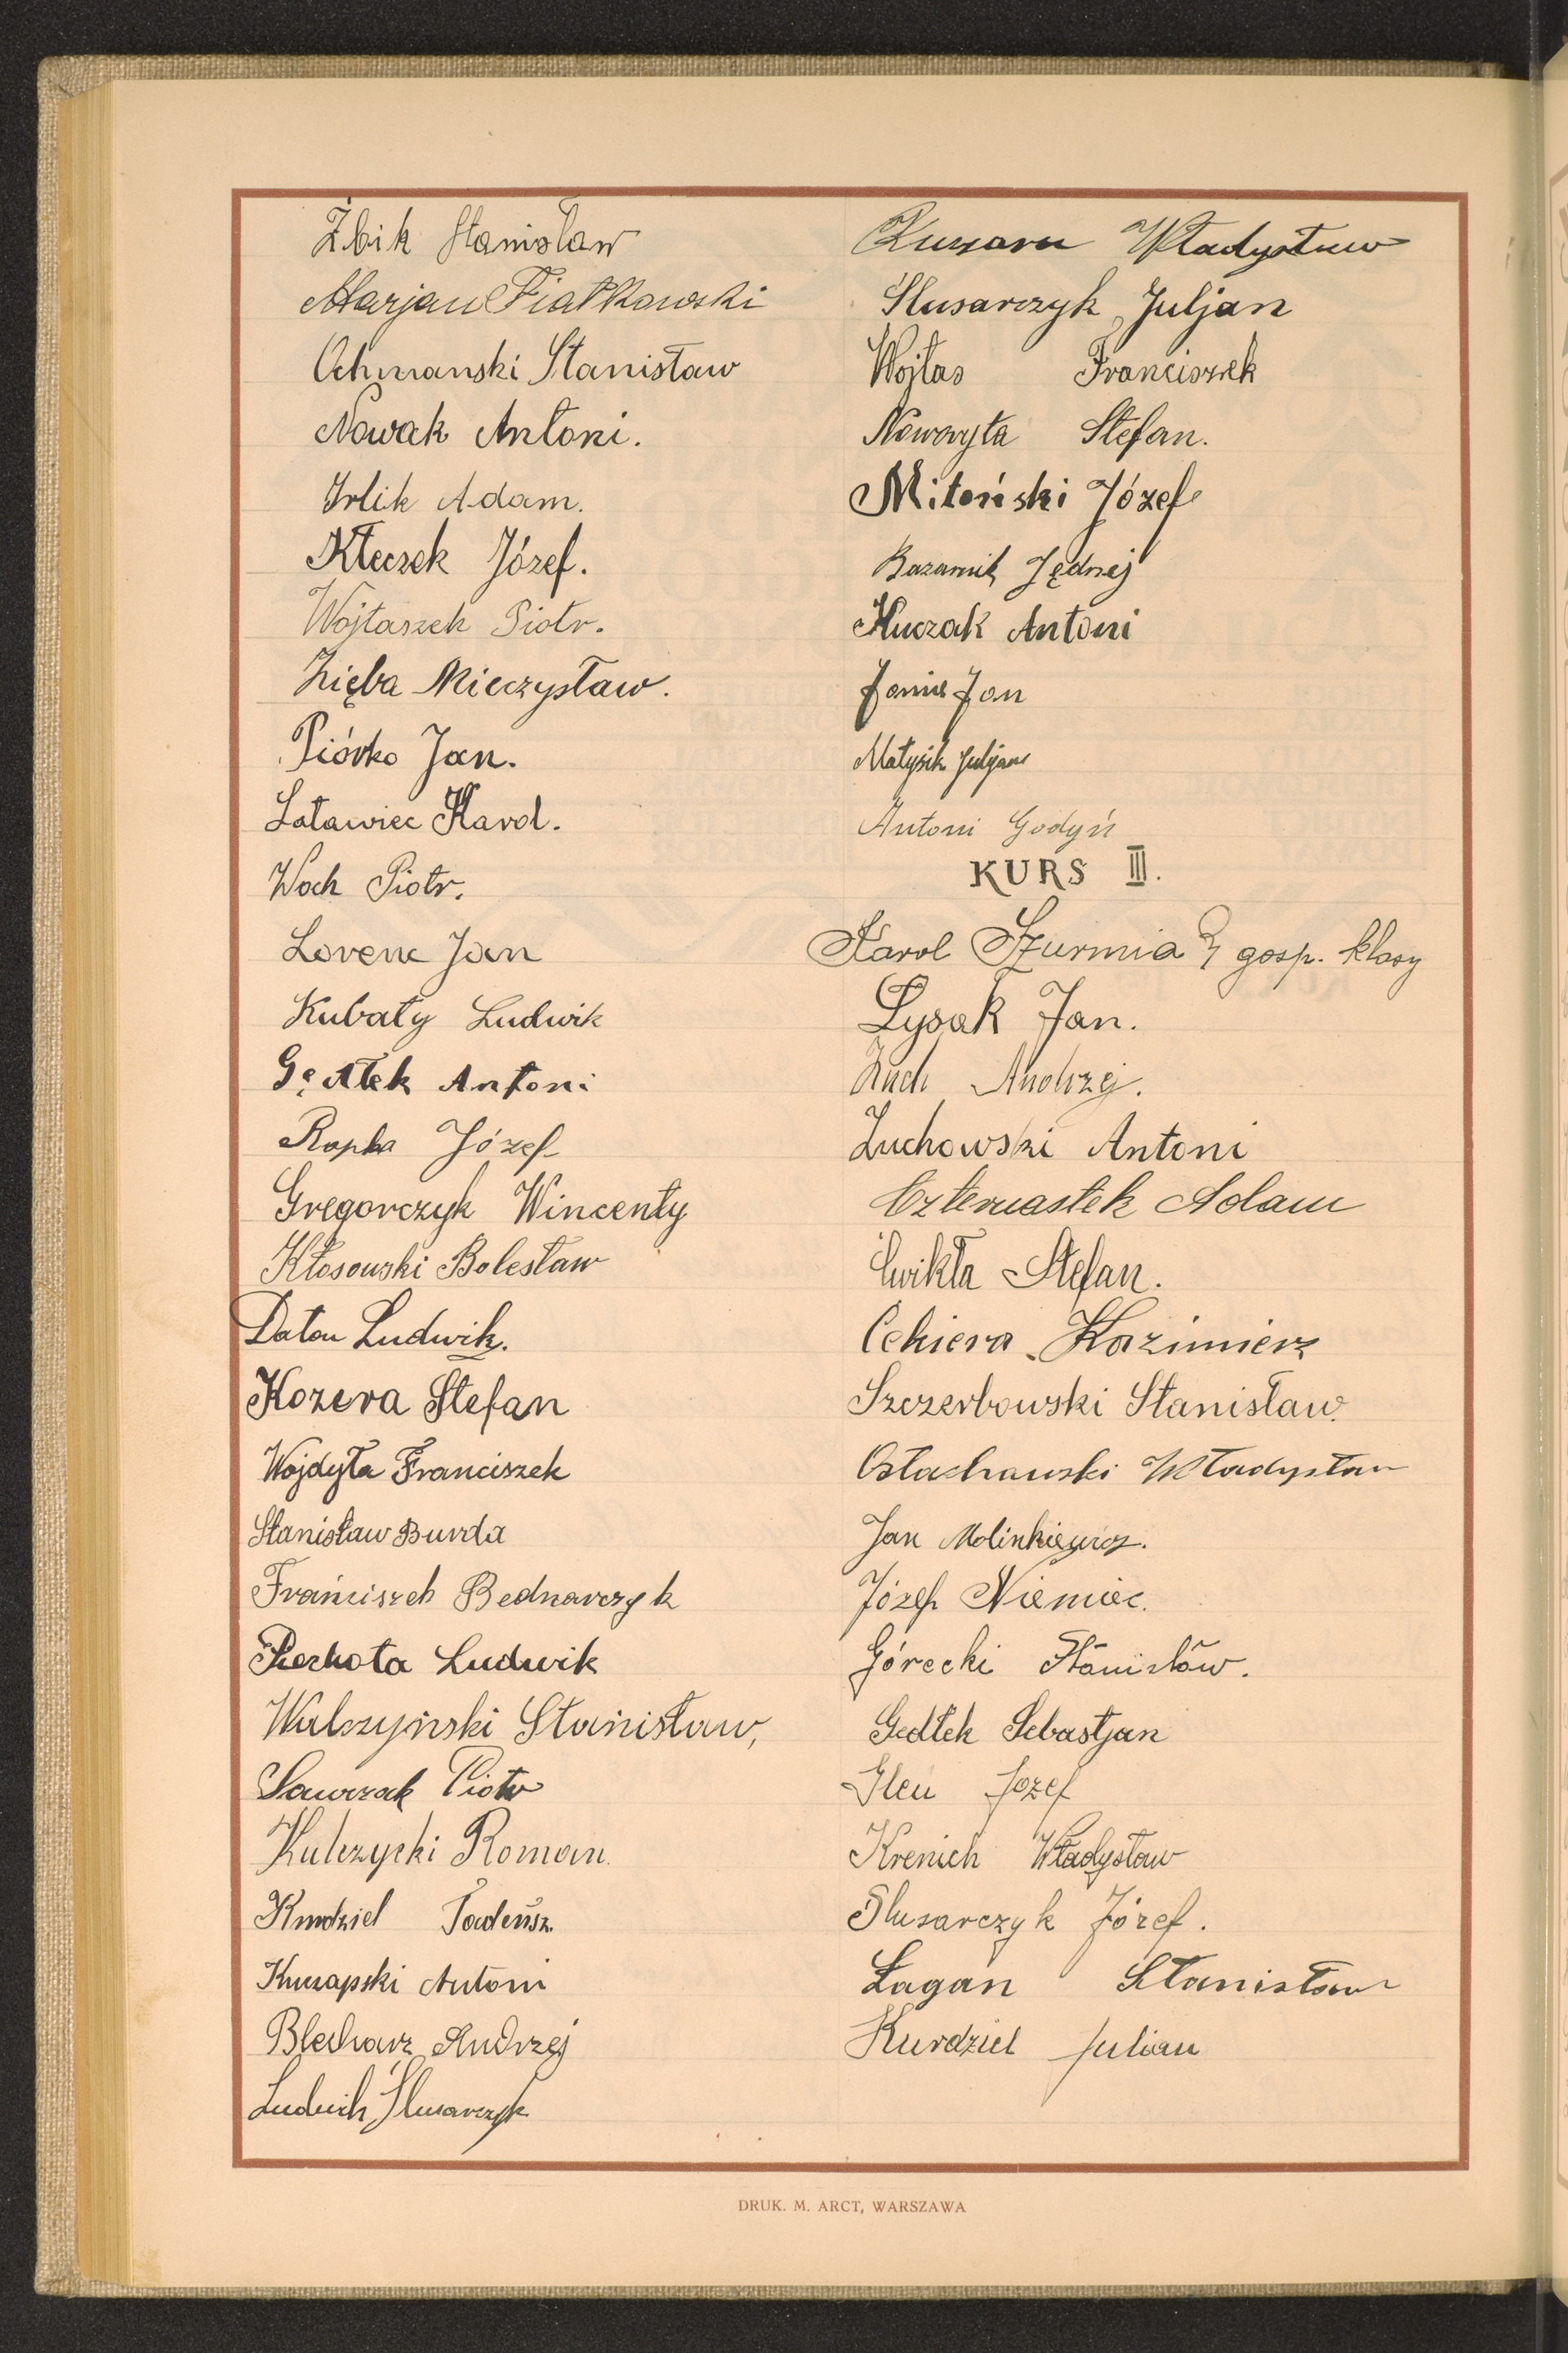 Żbik Stanisław
Marjan Fiałkowski
Ochmanski Stanisław
Nowak Antoni.
Irlik Adam.
Kłeczek Józef.
Wojtaszek Piotr.
Zięba Mieczysław.
Piórko Jan.
Latawiec Karol.
Woch Piotr.
Lorenc Jan
Kubaty Ludwik
Antoni
Rapka Józef
Gregorczyk Wincenty
Kłosowski Bolesław
Daton Ludwik.
Kozera Stefan
Wojdyła Franciszek
Stanisław Burda
Franciszek Bednarczyk
Piechota Ludwik
Walczyński Stanisław,
Sawczak Piotr
Kulczycki Roman.
Tadeusz.
Antoni
Blecharz Andrzej
Ludwik Ślusarczyk
Władysław
Ślusarczyk Juljan
Wojtas Franciszek
Noworyta Stefan.
Mitoński Józef
Jędrzej
Kuczak Antoni
Jan
Matysik Juljan
Antoni Godyń
KURS III.
Karol Szurmiak gosp. klasy
Łysak Jan.
Żuch Andrzej.
Żuchowski Antoni
Czternastek Adam
Ćwikła Stefan.
Cekiera Kazimierz
Szczerbowski Stanisław.
Ostachowski Władysław
Jan Molinkiewicz.
Józef Niemiec.
Górecki Stanisław.
Gedłek Sebastjan
Gleń Józef
Krenich Władysław
Ślusarczyk Józef.
Łagan Stanisław
Kurdziel Julian
DRUK. M. ARCT, WARSZAWA